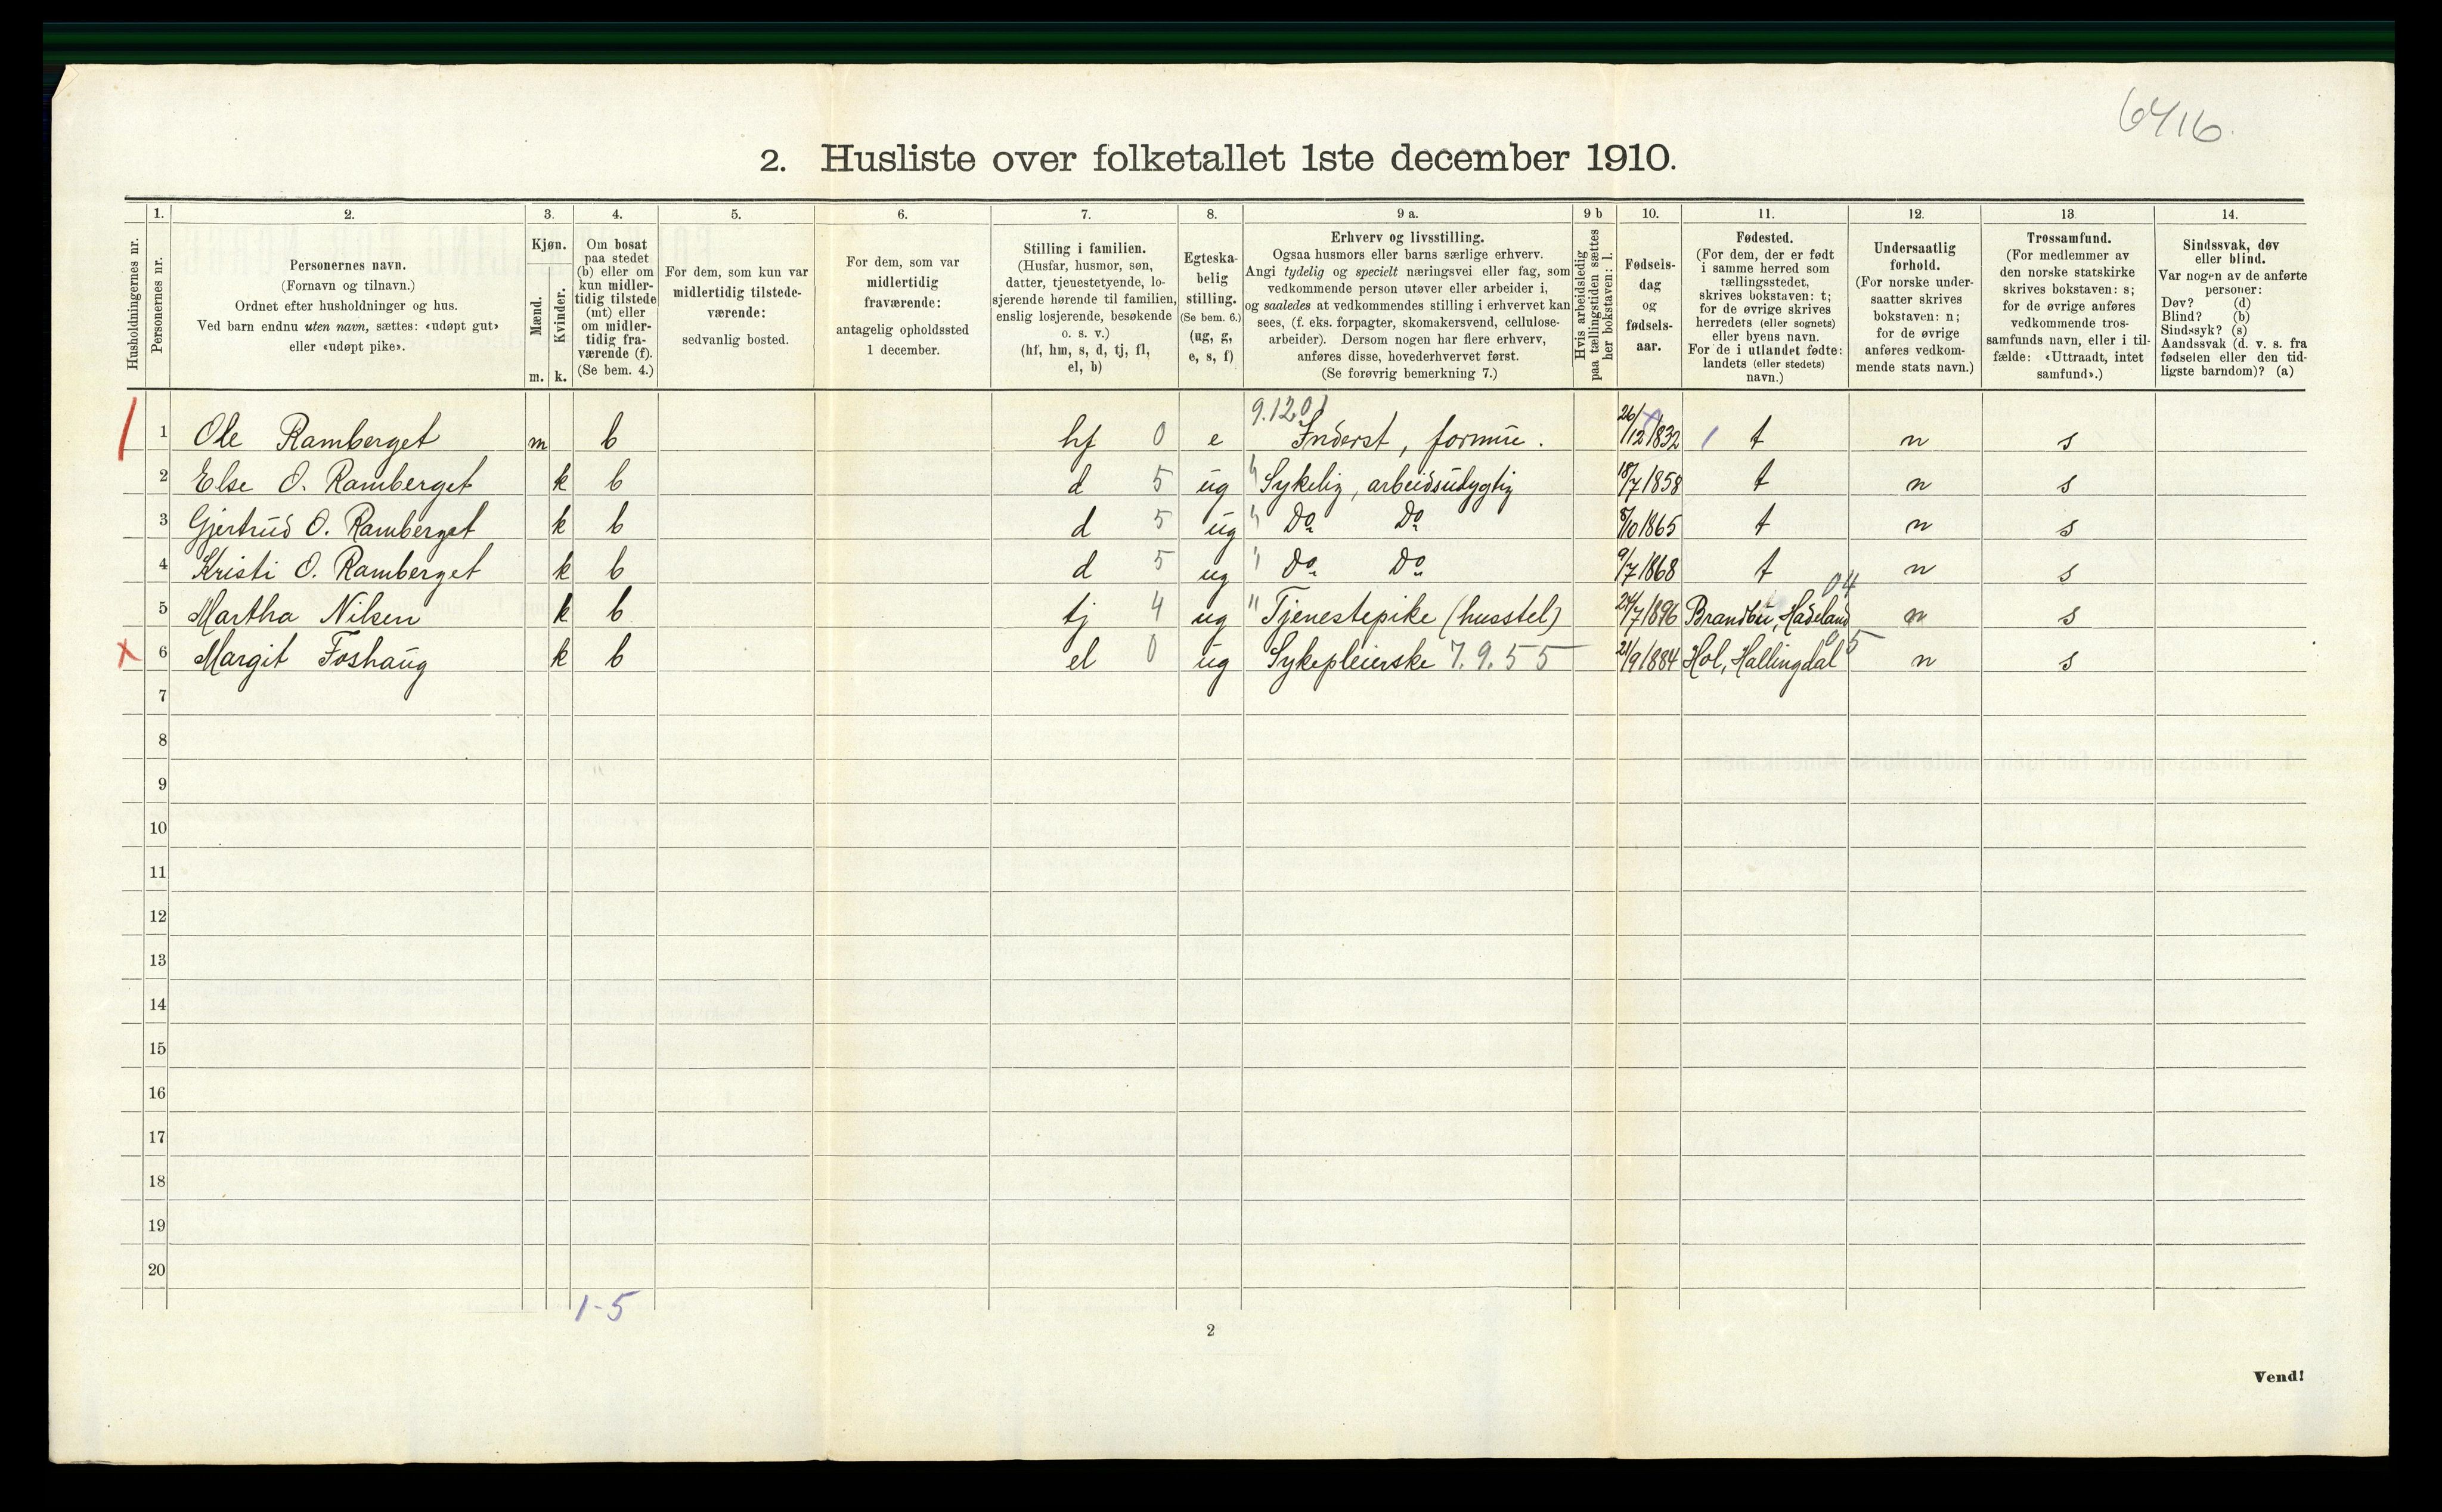 6416
2. Husliste over folketallet 1ste december 1910.
Husholdningernes nr.
1.
Personernes nr.
2.
Personernes navn.
(Fornavn og tilnavn.)
Ordnet efter husholdninger og hus.
Ved barn endnu uten navn, sættes: «udøpt gut»
eller «udøpt pike».
3.
Kjøn.
Mænd.
Kvinder.
m. k.
4.
Om bosat
paa stedet
(b) eller om
kun midler-
tidig tilstede
(mt) eller
om midler-
tidig fra-
værende (f).
(Se bem. 4.)
5.
For dem, som kun var
midlertidig tilstede-
værende:
sedvanlig bosted.
6.
For dem, som var
midlertidig
fraværende:
antagelig opholdssted
1 december.
7.
Stilling i familien.
(Husfar, husmor, søn,
datter, tjenestetyende, lo-
sjerende hørende til familien,
enslig losjerende, besøkende
o. s. v.)
(hf, hm, s, d, tj, fl,
el, b)
8.
Egteska-
belig
stilling.
(Se bem. 6.)
(ug, g,
e, s, f)
9 a.
Erhverv og livsstilling.
Ogsaa husmors eller barns særlige erhverv.
Angi tydelig og specielt næringsvei eller fag, som
vedkommende person utøver eller arbeider i,
og saaledes at vedkommendes stilling i erhvervet kan
sees, (f. eks. forpagter, skomakersvend, cellulose-
arbeider). Dersom nogen har flere erhverv,
anføres disse, hovederhvervet først.
(Se forøvrig bemerkning 7.)
9 b
Hvis arbeidsledig
paa tællingstiden sættes
her bokstaven: l.
10.
Fødsels-
dag
og
fødsels-
aar.
11.
Fødested.
(For dem, der er født
i samme herred som
tællingsstedet,
skrives bokstaven: t;
for de øvrige skrives
herredets (eller sognets)
eller byens navn.
For de i utlandet fødte:
landets (eller stedets)
navn.)
12.
Undersaatlig
forhold.
(For norske under-
saatter skrives
bokstaven: n;
for de øvrige
anføres vedkom-
mende stats navn.)
13
Trossamfund.
(For medlemmer av
den norske statskirke
skrives bokstaven: s;
for de øvrige anføres
vedkommende tros-
samfunds navn, eller i til-
fælde: «Uttraadt, intet
samfund».)
14.
Sindssvak, døv
eller blind.
Var nogen av de anførte
personer:
Døv? (d)
Blind? (b)
Sindssyk? (s)
Aandssvak (d. v. s. fra
fødselen eller den tid-
ligste barndom)? (a)
9.12.01
1 Ole Ramberget m b hf 0 e Inderst, formue. 26/12 1832 t n s
2 Else O. Ramberget k b d 5 ug " Sykelig, arbeidsudygtig 18/7 1858 t n s
3 Gjertrud O. Ramberget k b d 5 ug " Do Do 8/10 1865 t n s
4 Kristi O. Ramberget k b d 5 ug " Do Do 9/7 1868 t n s
04
5 Martha Nilsen k b tj 4 ug " Tjenestepike (husstel) 24/7 1896 Brandbu, Hadeland n s
05
6 Margit Foshaug k b el 0 ug Sykepleierske 7.9.55 21/9 1884 Hol, Hallingdal n s
7
8
9
10
11
12
13
14
15
16
17
18
19
20
1-5
2
Vend!